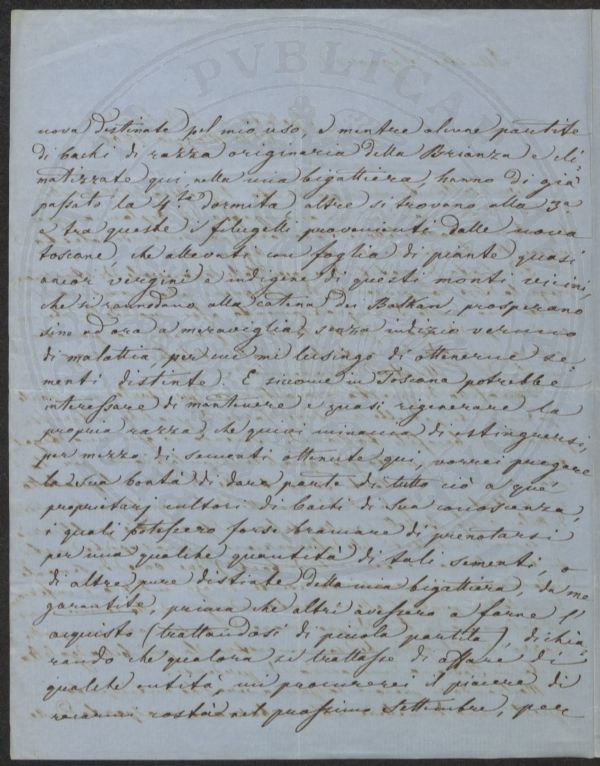 PVBLICA
uova destinate pel mio uso, e mentre alcune partite
di bachi di razza originaria della Brianza e cli-
matizzate qui nella mia bigattiera, hanno di già
passato la 4ta dormita, altre si trovano alla 3a
e tra queste i filugelli provenienti dalle uova
toscane, che allevati con foglia di piante quasi
ancor vergini e indigene di questi monti vicini,
che si rannodano alla catena dei Balkan, prosperano
sino ad ora a meraviglia, senza indizio veruno
di malattia, per cui mi lusingo di ottenerne se-
menti distinte. E siccome in Toscana potrebb'e
interessare di mantenere e quasi rigenerare la
propria razza, che quivi minaccia di estinguersi,
per mezzo di sementi ottenute qui, vorrei pregare
la sua bontà di dare parte di tutto ciò a que'
proprietarj cultori di bachi di sua conoscenza,
i quali potessero forse bramare di prenotarsi
per una qualche quantità di tali sementi, o
di altre pure distinte della mia bigattiera, da me
garantite, prima che altri avessero a farne l'
acquisto (trattandosi di piccola partita), dichia-
rando che qualora si trattasse di affare di
qualche entità, mi procurerei il piacere di
recarmi costà nel prossimo Settembre, per